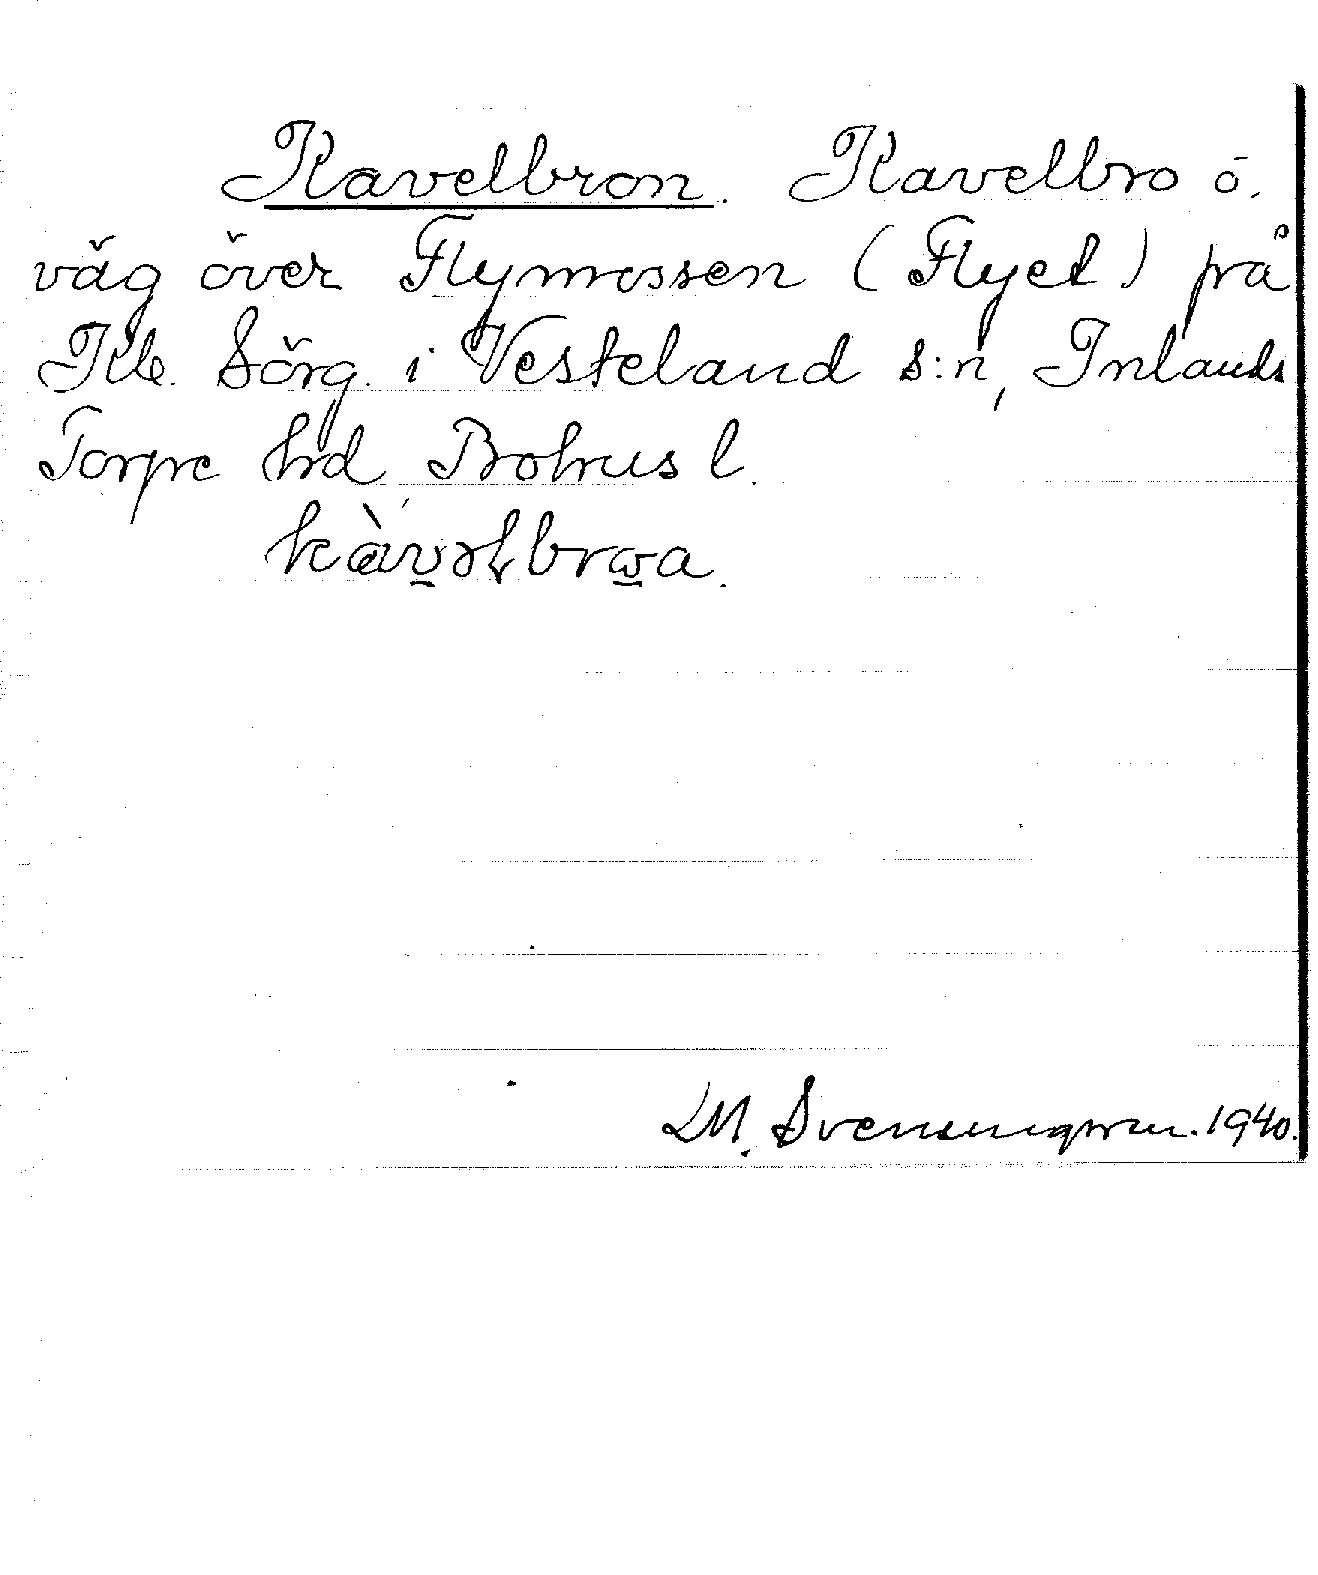 Kavelbron. Kavelbro o.
väg över Flymossen (Flyet) på
Kle. Sörg. i Vesteland s:n, Inlands
Torpe hrd, Bohus l.
kàvəlbrωa.
LM. Svensungsson. 1940.